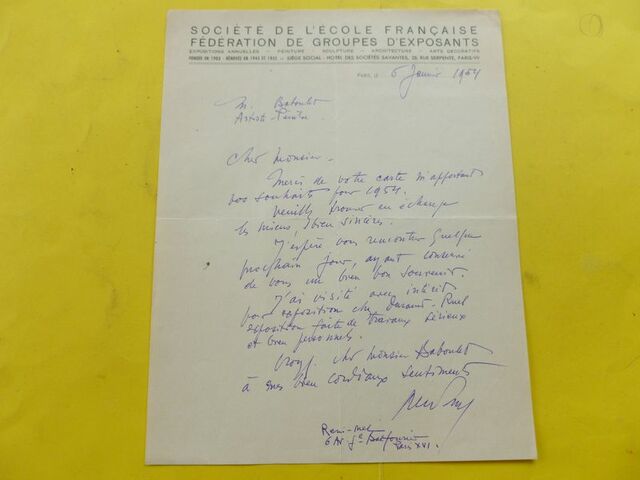 SOCIÉTÉ DE L'ÉCOLE FRANÇAISE
FÉDÉRATION DE GROUPES D'EXPOSANTS
EXPOSITIONS ANNUELLES - PEINTURE - SCULPTURE - ARCHITECTURE - ARTS DÉCORATIFS
FONDÉE EN 1903 - RÉNOVÉE EN 1945 ET 1952 - SIÈGE SOCIAL : HOTEL DES SOCIÉTÉS SAVANTES, 28, RUE SERPENTE, PARIS-VIe
PARIS, LE 5 Janvier 1954
M. Baboulet
Artiste-Peintre
Cher Monsieur -
Merci de votre carte m'apportant
vos souhaits pour 1954.
Veuillez trouver en échange
les miens, bien sincères.
J'espère vous rencontrer quelque
prochain jour, ayant conservé
de vous un bien bon souvenir.
J'ai visité avec intérêt
votre exposition chez Durand-Ruel
exposition faite de travaux sérieux
et bien personnels.
Croyez, cher Monsieur Baboulet
à mes bien cordiaux sentiments
6 Av.
Paris XVI.